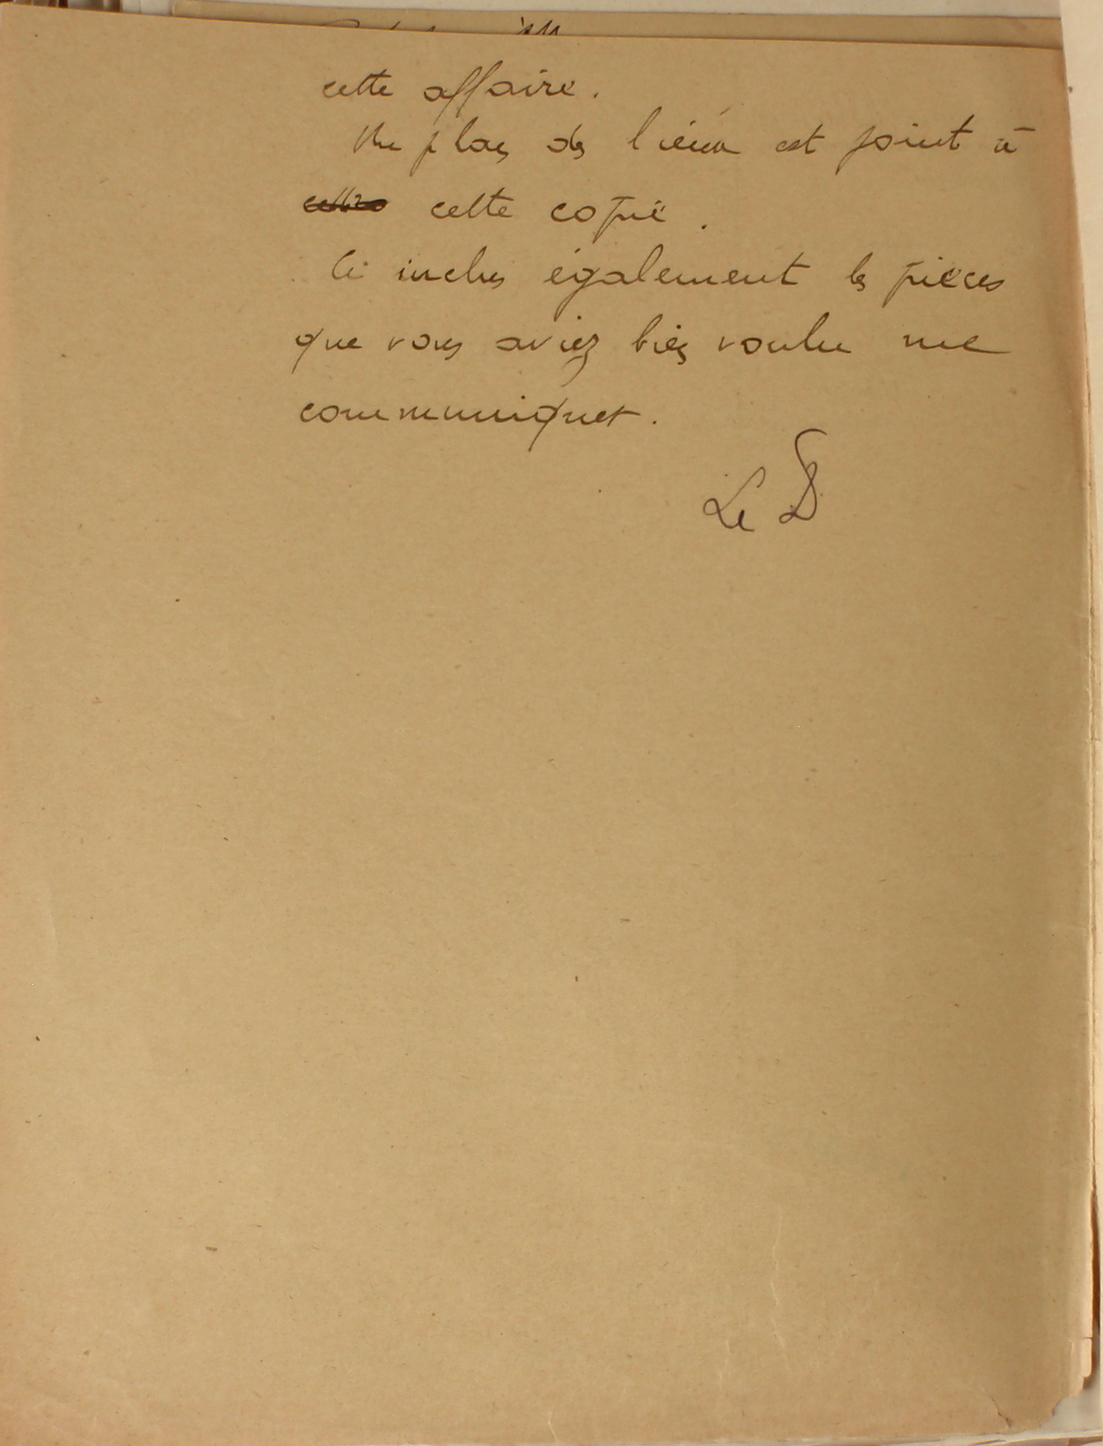 cette affaire.
Un plan des lieux est joint à
cette copie.
Ci inclus également les pièces
que vous aviez bien voulu me
communiquer.
Le D